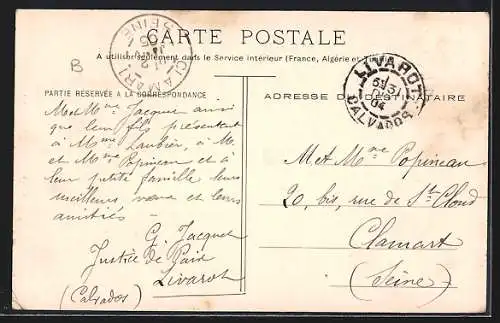 CARTE POSTALE
A utiliser seulement dans le Service intérieur (France, Algérie et Tunisie)
B
CLAMART
SEINE
LIVAROT
31
04
CALVADOS
PARTIE RESERVÉE A LA CORRESPONDANCE
ADRESSE DU DESTINATAIRE
M et Mme Jacquet ainsi
que leur fils présentent
à Mme Laubier, à M.
et Mme Popineau et à
leur petite famille leurs
meilleurs vœux et leurs
amitiés –
G. Jacquet
Justice de Paix
Livarot
(Calvados)
M et Mme Popineau
20, bis, rue de St Cloud
Clamart
(Seine)